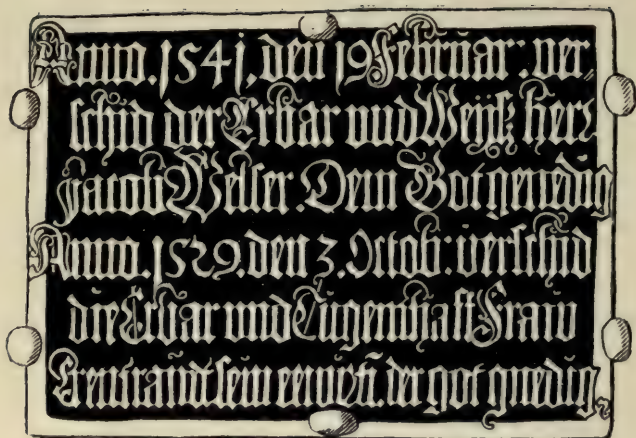 Anno. 1541, den 19 Februar: ver,
schid der Erbar und Weiss herr
Jacob Welser. Dem Got genedig
Anno. 1529. den 3. Octob: verschid
die Erbar und Tugenthaft Fraw
sein der got gnedig